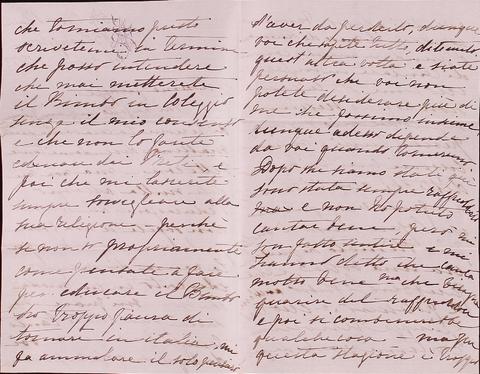 che torniamo presto
scrivetemi in termini
che possa intendere
che mai metterete
il Bimbo in Colleggio
senza il mio consenso
e che non lo farete
educare dai Preti, e
poi che mi lascerete
sempre sorvegliare alla
sua religione - perchè
se non so propriamente
come pensate a fare
per educare il Bimbo
ho troppo paura di
tornare in Italia, mi
fa ammalare il solo pensiero
d'aver da perderlo, dunque
voi che sapete tutto, ditemelo
quest'altra volta e siate
persuaso che voi non
potete desiderare più di
me che possiamo insieme
dunque adesso dipende
da voi quando torneremo
Dopo che siamo stati qui
sono stata sempre raffreddata
e non ho potuto
cantar bene, però mi
son fatta sentire e mi
hanno detto che canta
molto bene ma che bisogna
guarire del raffreddore
e poi si combinerebbe
qualche cosa - ma per
questa stagione è troppo